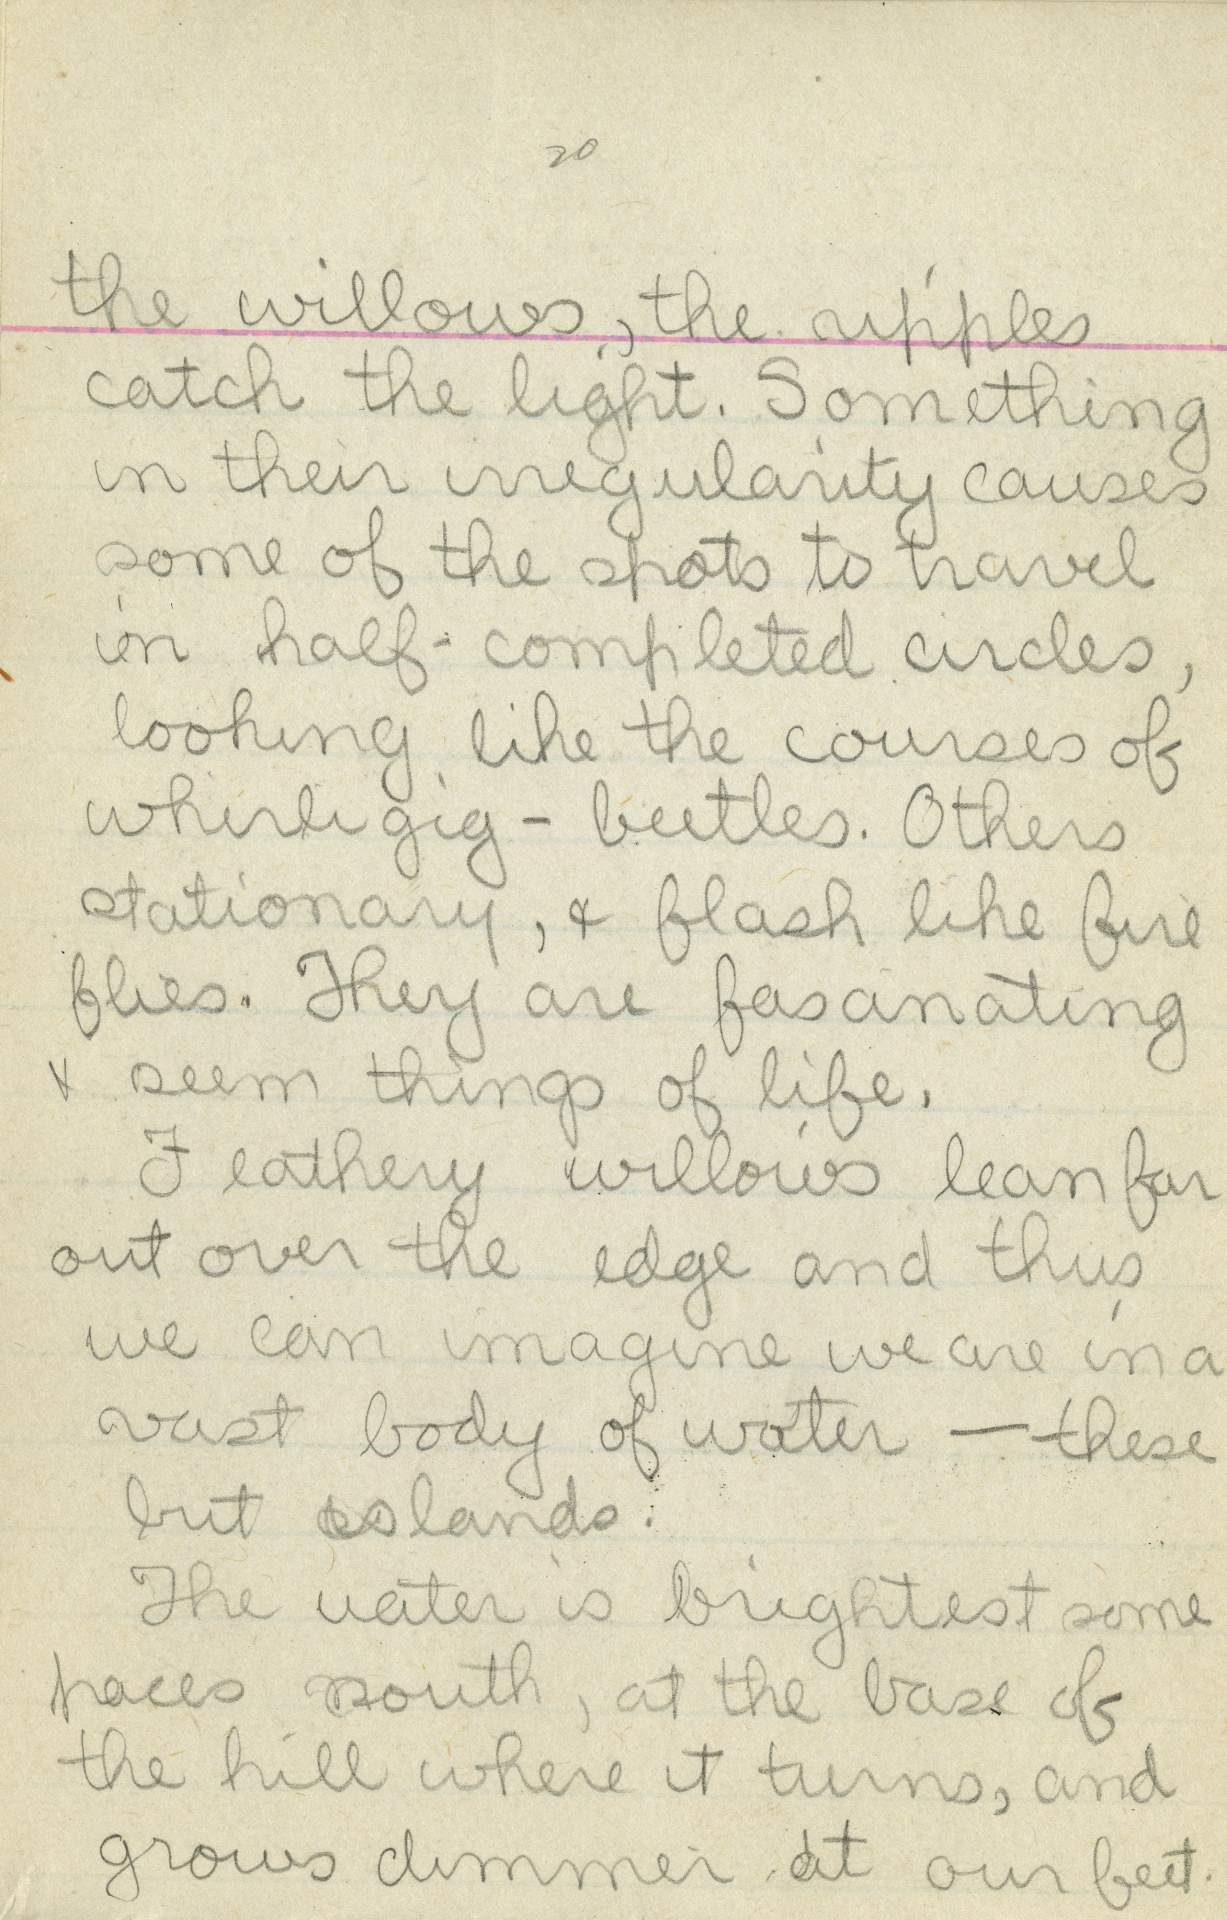 20
the willows, the ripples
catch the light. Something
in their irregularity causes
some of the spots to travel
in half-completed circles,
looking like the courses of
whirligig-beetles. Others
stationary, & flash like fire
flies. They are fascinating
& seem things of life.
Feathery willows lean far
out over the edge and thus
we can imagine we are in a
vast body of water — these
but islands.
The water is brightest some
paces south, at the base of
the hill where it turns, and
grows dimmer at our feet.